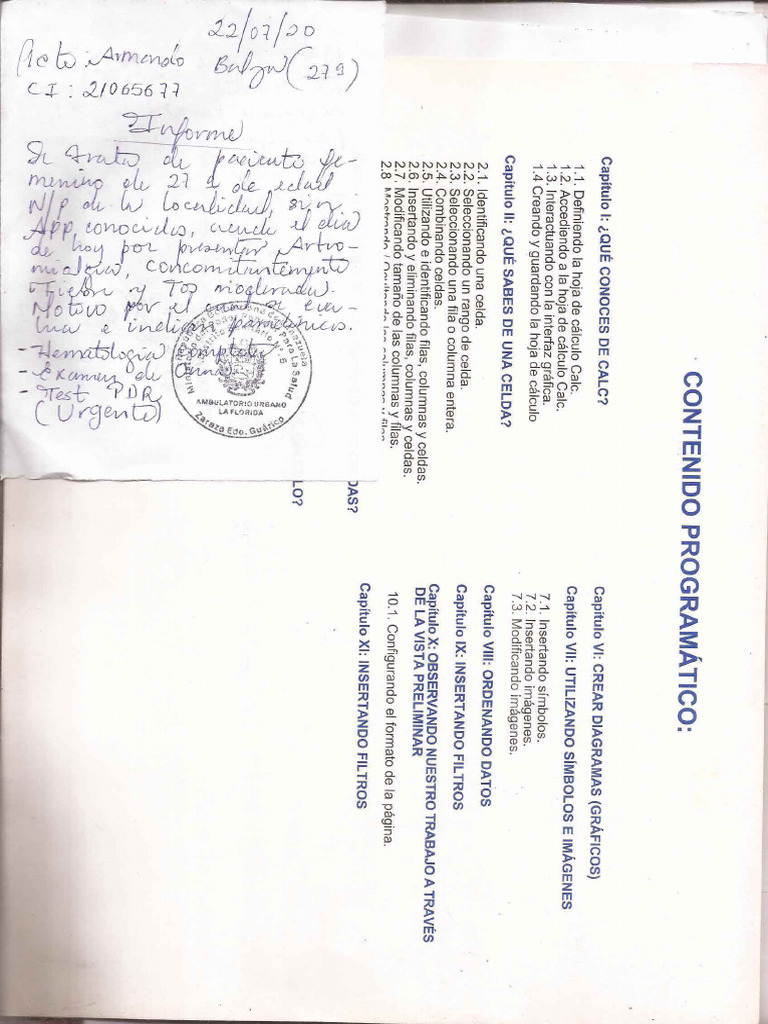 22/07/20
Pcte: Armando
(27a)
CI: 21065677
Informe
Se trata de paciente fe-
menino de 27 a de edad
N/p de la localidad, sin
App conocidos, acude el dia
de hoy por presentar Artro-
mialgias, concomitantemente
Fiebre y Tos moderada.
Motivo por el cual se eva-
lua e indican
- Hematologia Completa
- Examen de Orina
- Test PDR
(Urgente)
AMBULATORIO URBANO
LA FLORIDA
Zaraza Edo. Guárico
CONTENIDO PROGRAMÁTICO:
Capítulo I: ¿QUÉ CONOCES DE CALC?
1.1. Definiendo la hoja de cálculo Calc.
1.2. Accediendo a la hoja de cálculo Calc.
1.3. Interactuando con la interfaz gráfica.
1.4 Creando y guardando la hoja de cálculo
Capítulo II: ¿QUÉ SABES DE UNA CELDA?
2.1. Identificando una celda.
2.2. Seleccionando un rango de celda.
2.3. Seleccionando una fila o columna entera.
2.4. Combinando celdas.
2.5. Utilizando e identificando filas, columnas y celdas.
2.6. Insertando y eliminando filas, columnas y celdas.
2.7. Modificando tamaño de las columnas y filas.
2.8 Mostrando / Ocultando las columnas y filas
DAS?
LO?
Capítulo VI: CREAR DIAGRAMAS (GRÁFICOS)
Capítulo VII: UTILIZANDO SÍMBOLOS E IMÁGENES
7.1. Insertando símbolos.
7.2. Insertando imágenes.
7.3. Modificando imágenes.
Capítulo VIII: ORDENANDO DATOS
Capítulo IX: INSERTANDO FILTROS
Capítulo X: OBSERVANDO NUESTRO TRABAJO A TRAVÉS
DE LA VISTA PRELIMINAR
10.1. Configurando el formato de la página.
Capítulo XI: INSERTANDO FILTROS